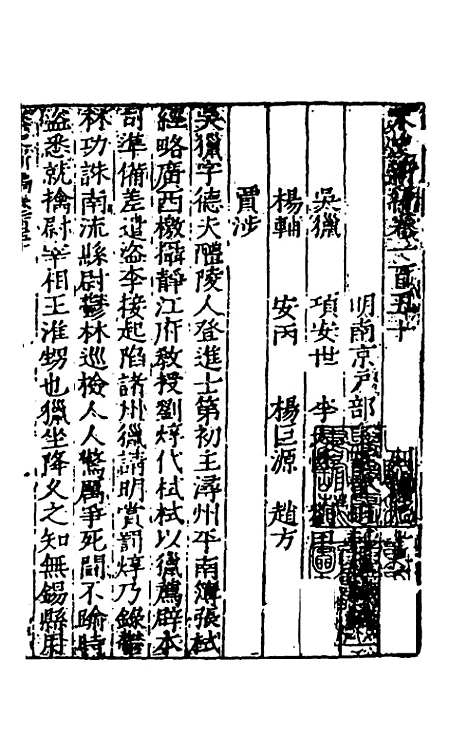 宋史新編卷一百五十
明南京戶部
吳獵 項安世 李
楊輔 安丙 楊巨源 趙方
賈涉
吳獵字德夫醴陵人登進士第初主潯州平南簿張栻
經略廣西檄攝靜江府敎授劉焞代栻栻以獵薦辟本
司準備差遣盜李接起陷諸州獵請明賞罰焞乃錄鬱
林功誅南流縣尉鬱林巡檢人人驚厲爭死鬪不踰時
盜悉就擒尉宰相王淮甥也獵坐降久之知無錫縣用